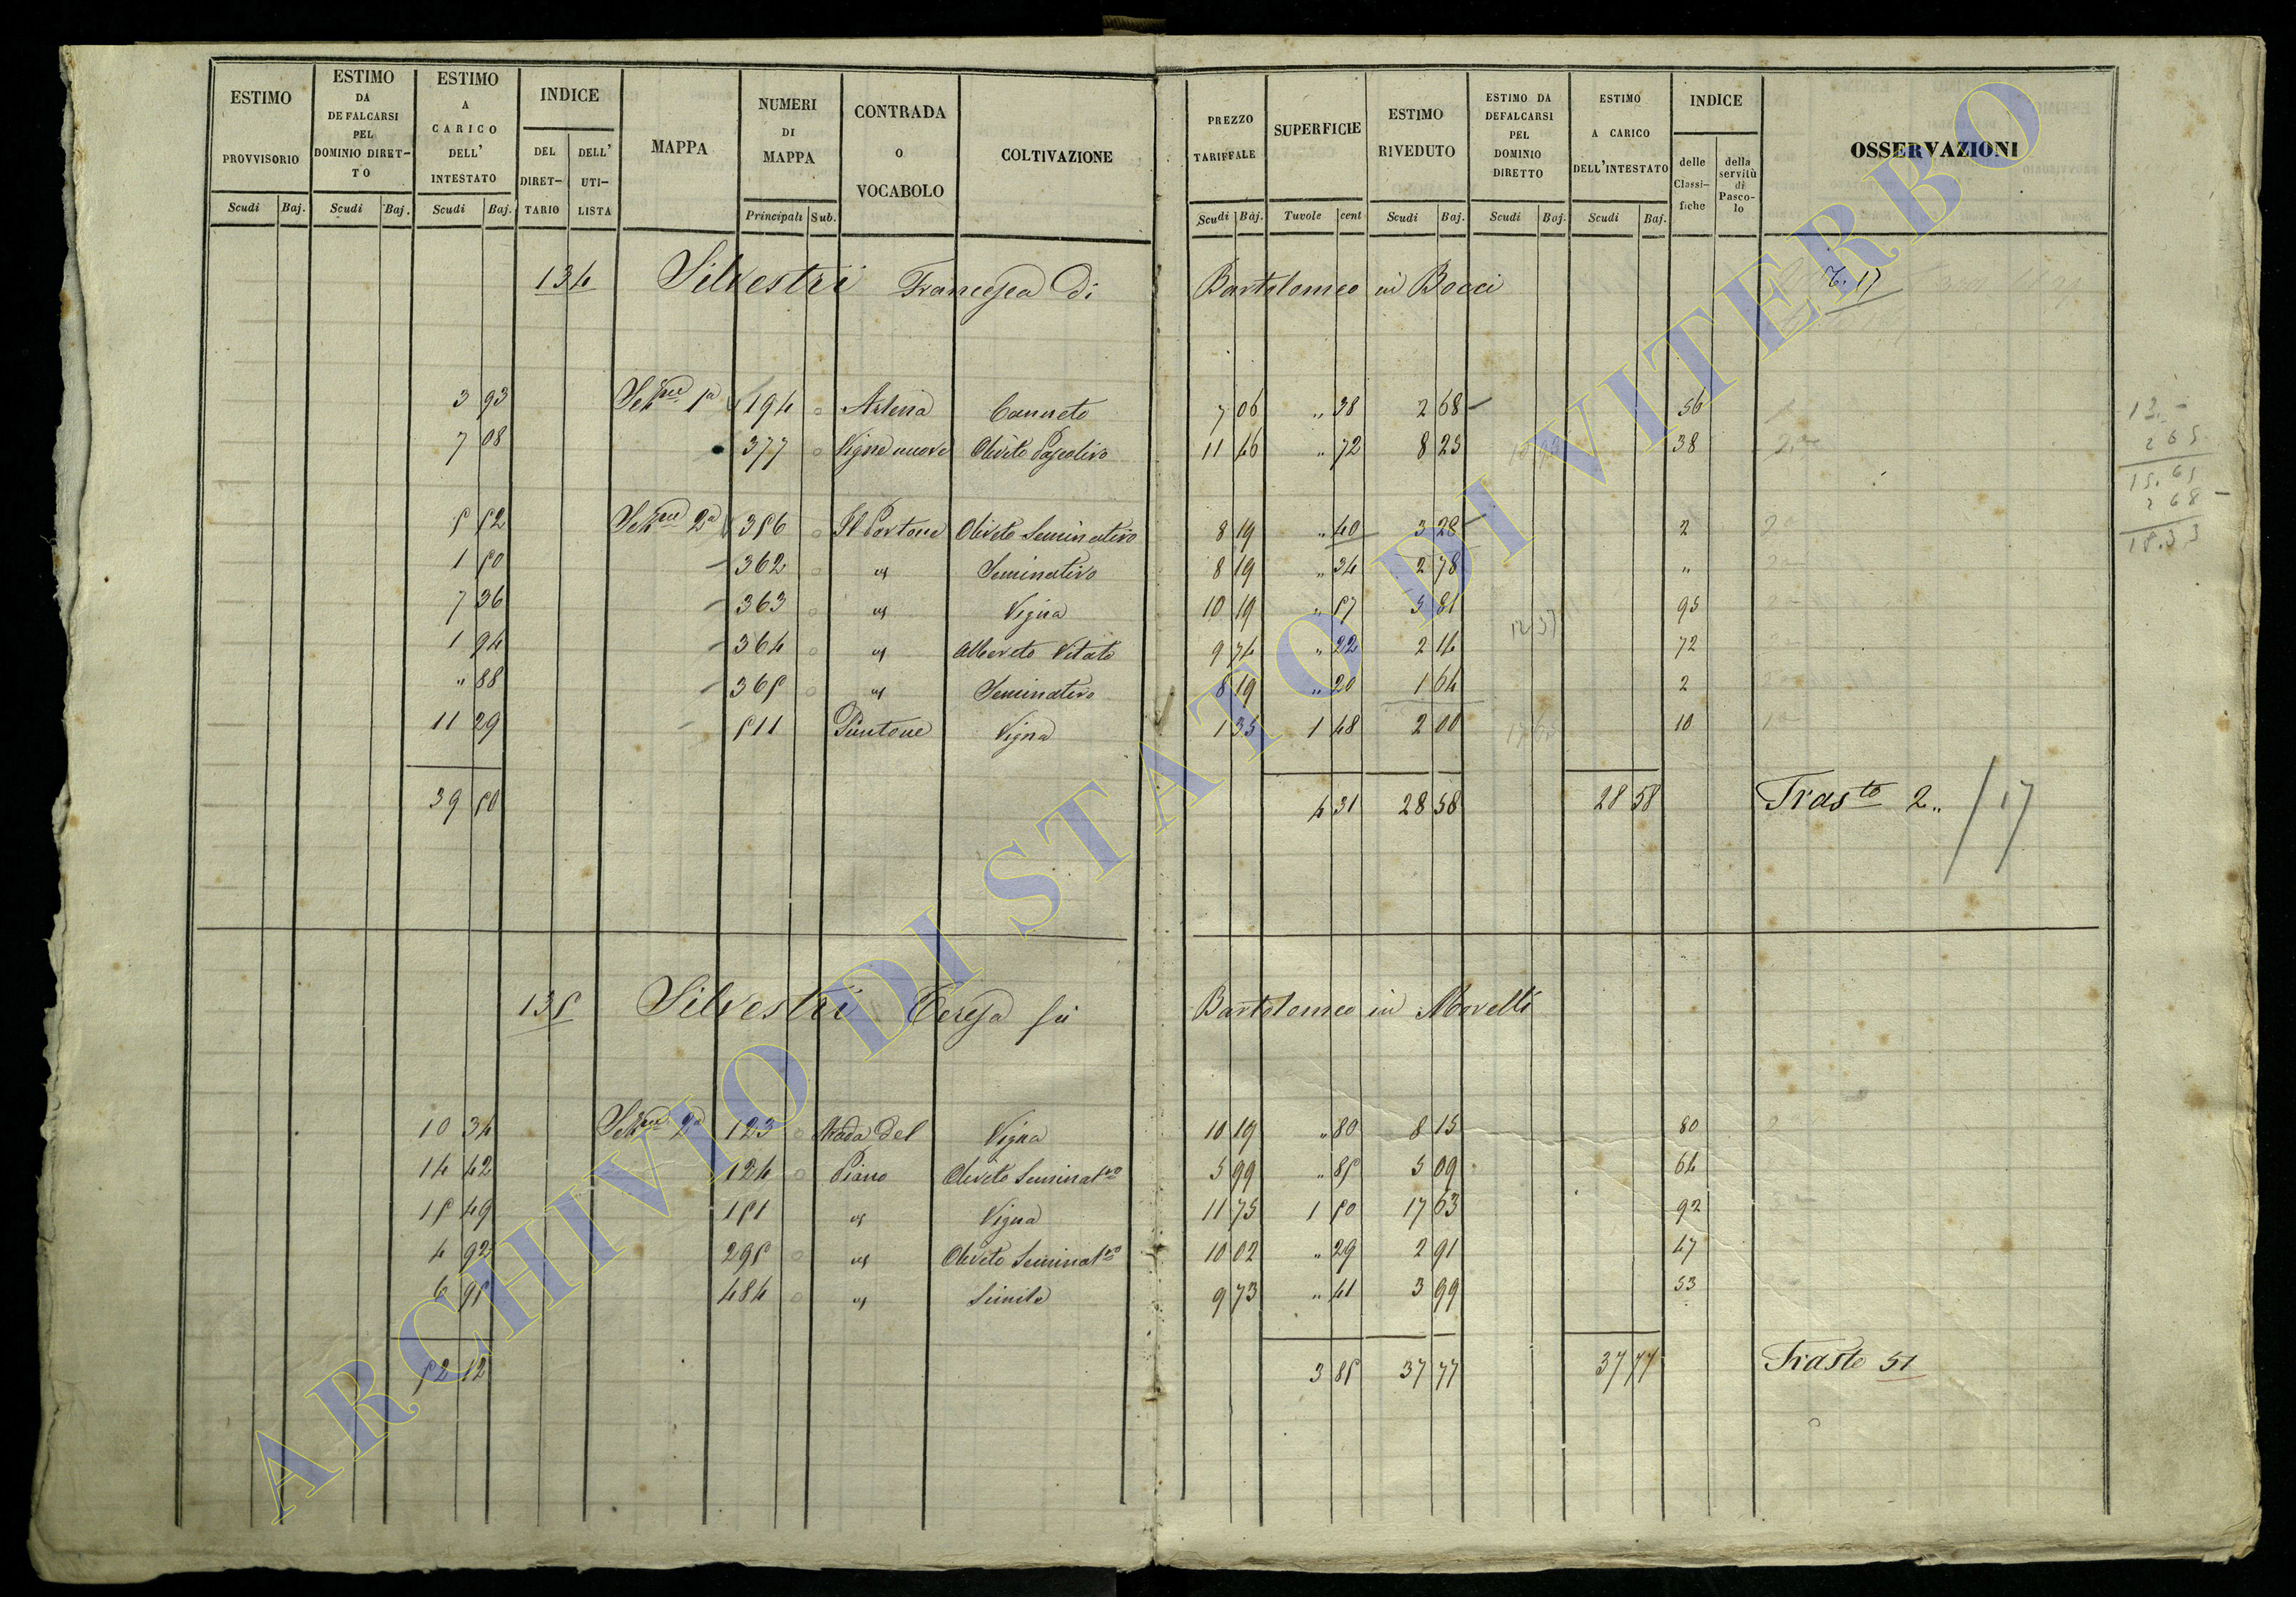 ESTIMO PROVVISORIO Scudi Baj.
ESTIMO DA DEFALCARSI PEL DOMINIO DIRET-TO Scudi Baj.
ESTIMO A CARICO DELL' INTESTATO Scudi Baj.
INDICE DEL DIRET-TARIO DELL' UTI-LISTA
MAPPA
NUMERI DI MAPPA Principali Sub.
CONTRADA O VOCABOLO
COLTIVAZIONE
PREZZO TARIFFALE Scudi Baj.
SUPERFICIE Tavole cent
ESTIMO RIVEDUTO Scudi Baj.
ESTIMO DA DEFALCARSI PEL DOMINIO DIRETTO Scudi Baj.
ESTIMO A CARICO DELL'INTESTATO Scudi Baj.
INDICE delle Classi-fiche della servitù di Pasco-lo
OSSERVAZIONI
134 Silvestri Francesca di Bartolomeo in Bocci T. 17
3 93 Sez.ne 1a 194 Arlena Canneto 7 06 " 38 2 68 56
7 08 377 Vigne nuove Oliveto Pascolivo 11 46 " 72 8 25 38
5 52 Sez.ne 2a 356 Il Portone Oliveto Seminativo 8 19 " 40 3 28 2
1 50 362 " Seminativo 8 19 " 34 2 78 "
7 36 363 " Vigna 10 19 " 57 5 81 95
1 94 364 " Alberato Vitato 9 74 " 22 2 14 72
" 88 365 " Seminativo 8 19 " 20 1 64 2
11 29 511 Puntone Vigna 1 35 1 48 2 00 10
39 50 4 31 28 58 28 58 Trasto 2 " / 17
12 -
2 65
15.65
2 68 -
18.33
135 Silvestri Teresa fu Bartolomeo in Morelli
10 34 Sez.ne 2a 123 Strada del Vigna 10 19 " 80 8 15 80
14 42 124 Piano Oliveto Seminat.vo 5 99 " 85 5 09 64
15 49 151 " Vigna 11 75 1 50 17 63 92
4 92 295 " Oliveto Seminat.vo 10 02 " 29 2 91 47
6 95 484 " Simile 9 73 " 41 3 99 53
52 12 3 85 37 77 37 77 Trasto 51
ARCHIVIO DI STATO DI VITERBO